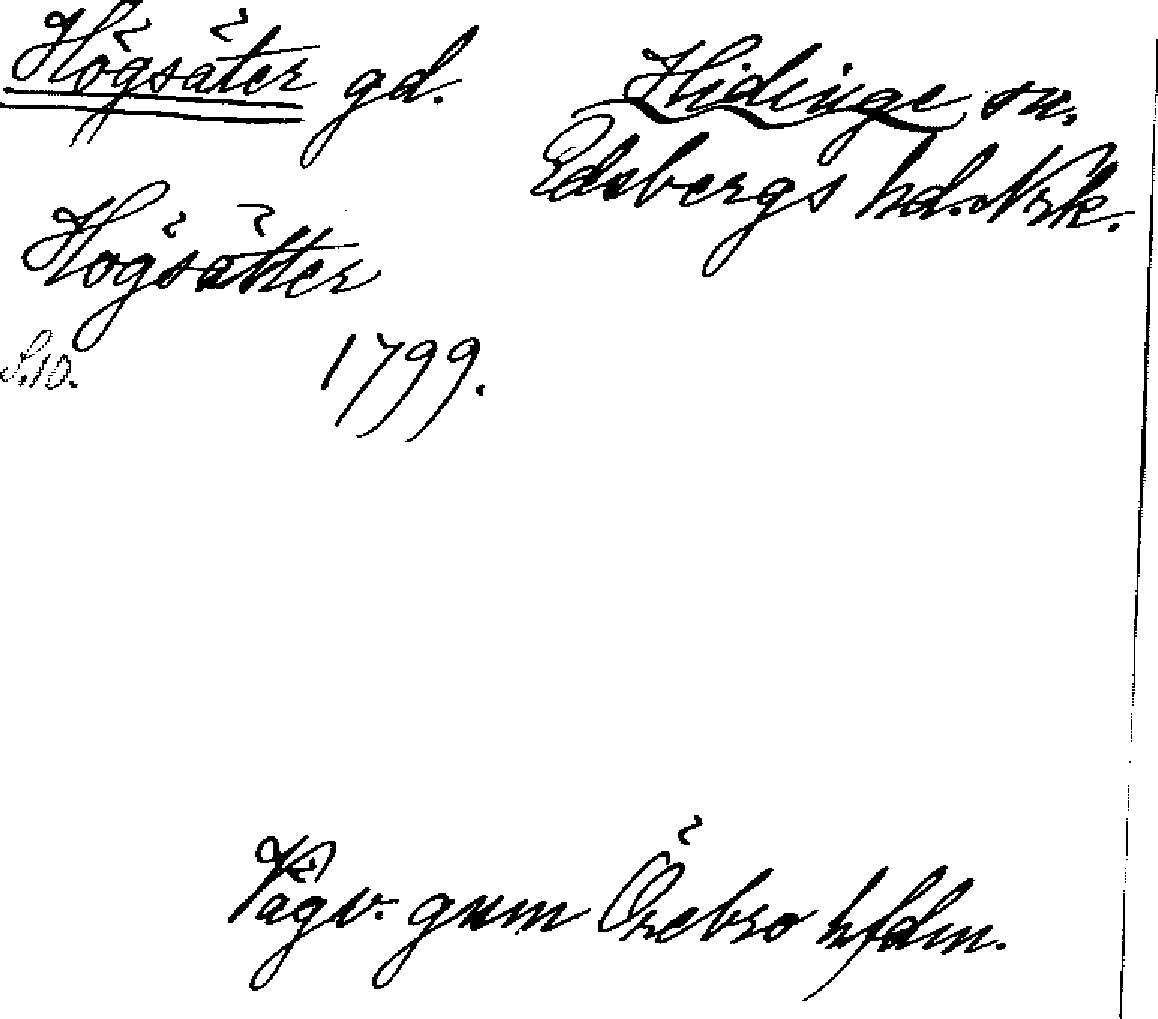 Högsäter gd.
Hidinge sn.
Edsbergs hd. Nrk.
Högsätter
S. 10.
1799.
Vägv. gnm Örebro hfdm.